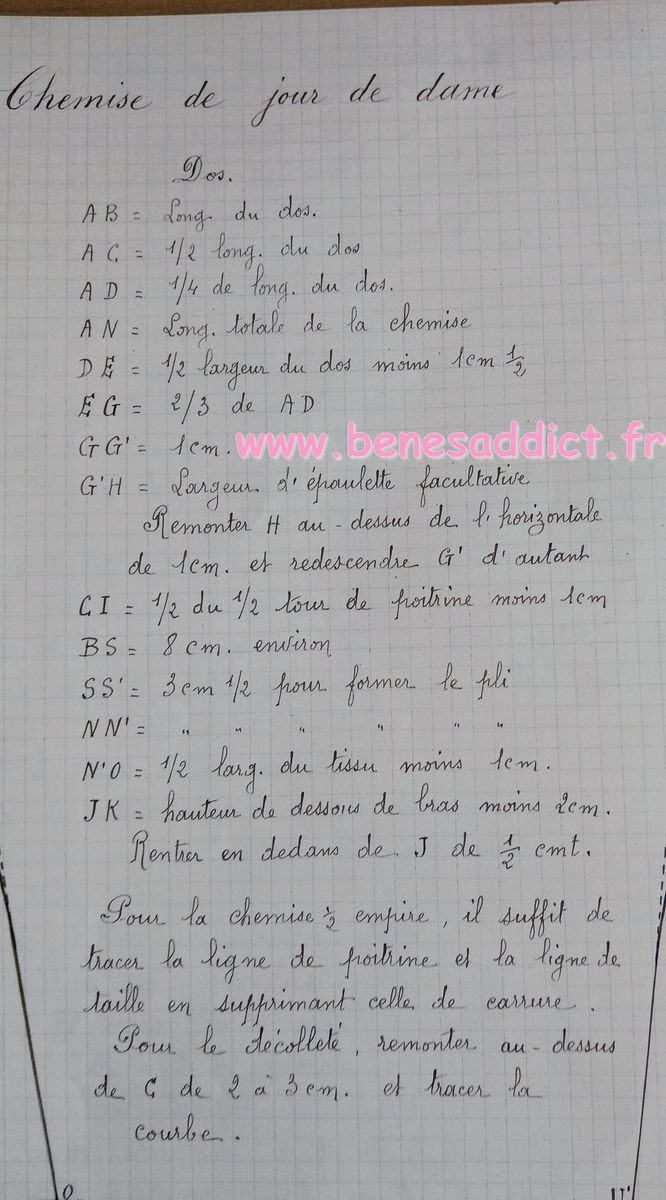 Chemise de jour de dame
Dos.
AB = Long. du dos.
AC = 1/2 long. du dos
AD = 1/4 de long. du dos.
AN = Long. totale de la chemise
DE = 1/2 largeur du dos moins 1cm 1/2
EG = 2/3 de AD
GG' = 1cm. www.benesaddict.fr
G'H = Largeur d'épaulette facultative
Remonter H au-dessus de l'horizontale
de 1cm. et redescendre G' d'autant
CI = 1/2 du 1/2 tour de poitrine moins 1cm
BS = 8cm. environ
SS' = 3cm 1/2 pour former le pli
NN' = " " " " " "
N'O = 1/2 larg. du tissu moins 1cm.
JK = hauteur de dessous de bras moins 2cm.
Rentrer en dedans de J de 1/2 cmt.
Pour la chemise 1/2 empire, il suffit de
tracer la ligne de poitrine et la ligne de
taille en supprimant celle de carrure.
Pour le décolleté, remonter au-dessus
de C de 2 à 3cm. et tracer la
courbe.
O